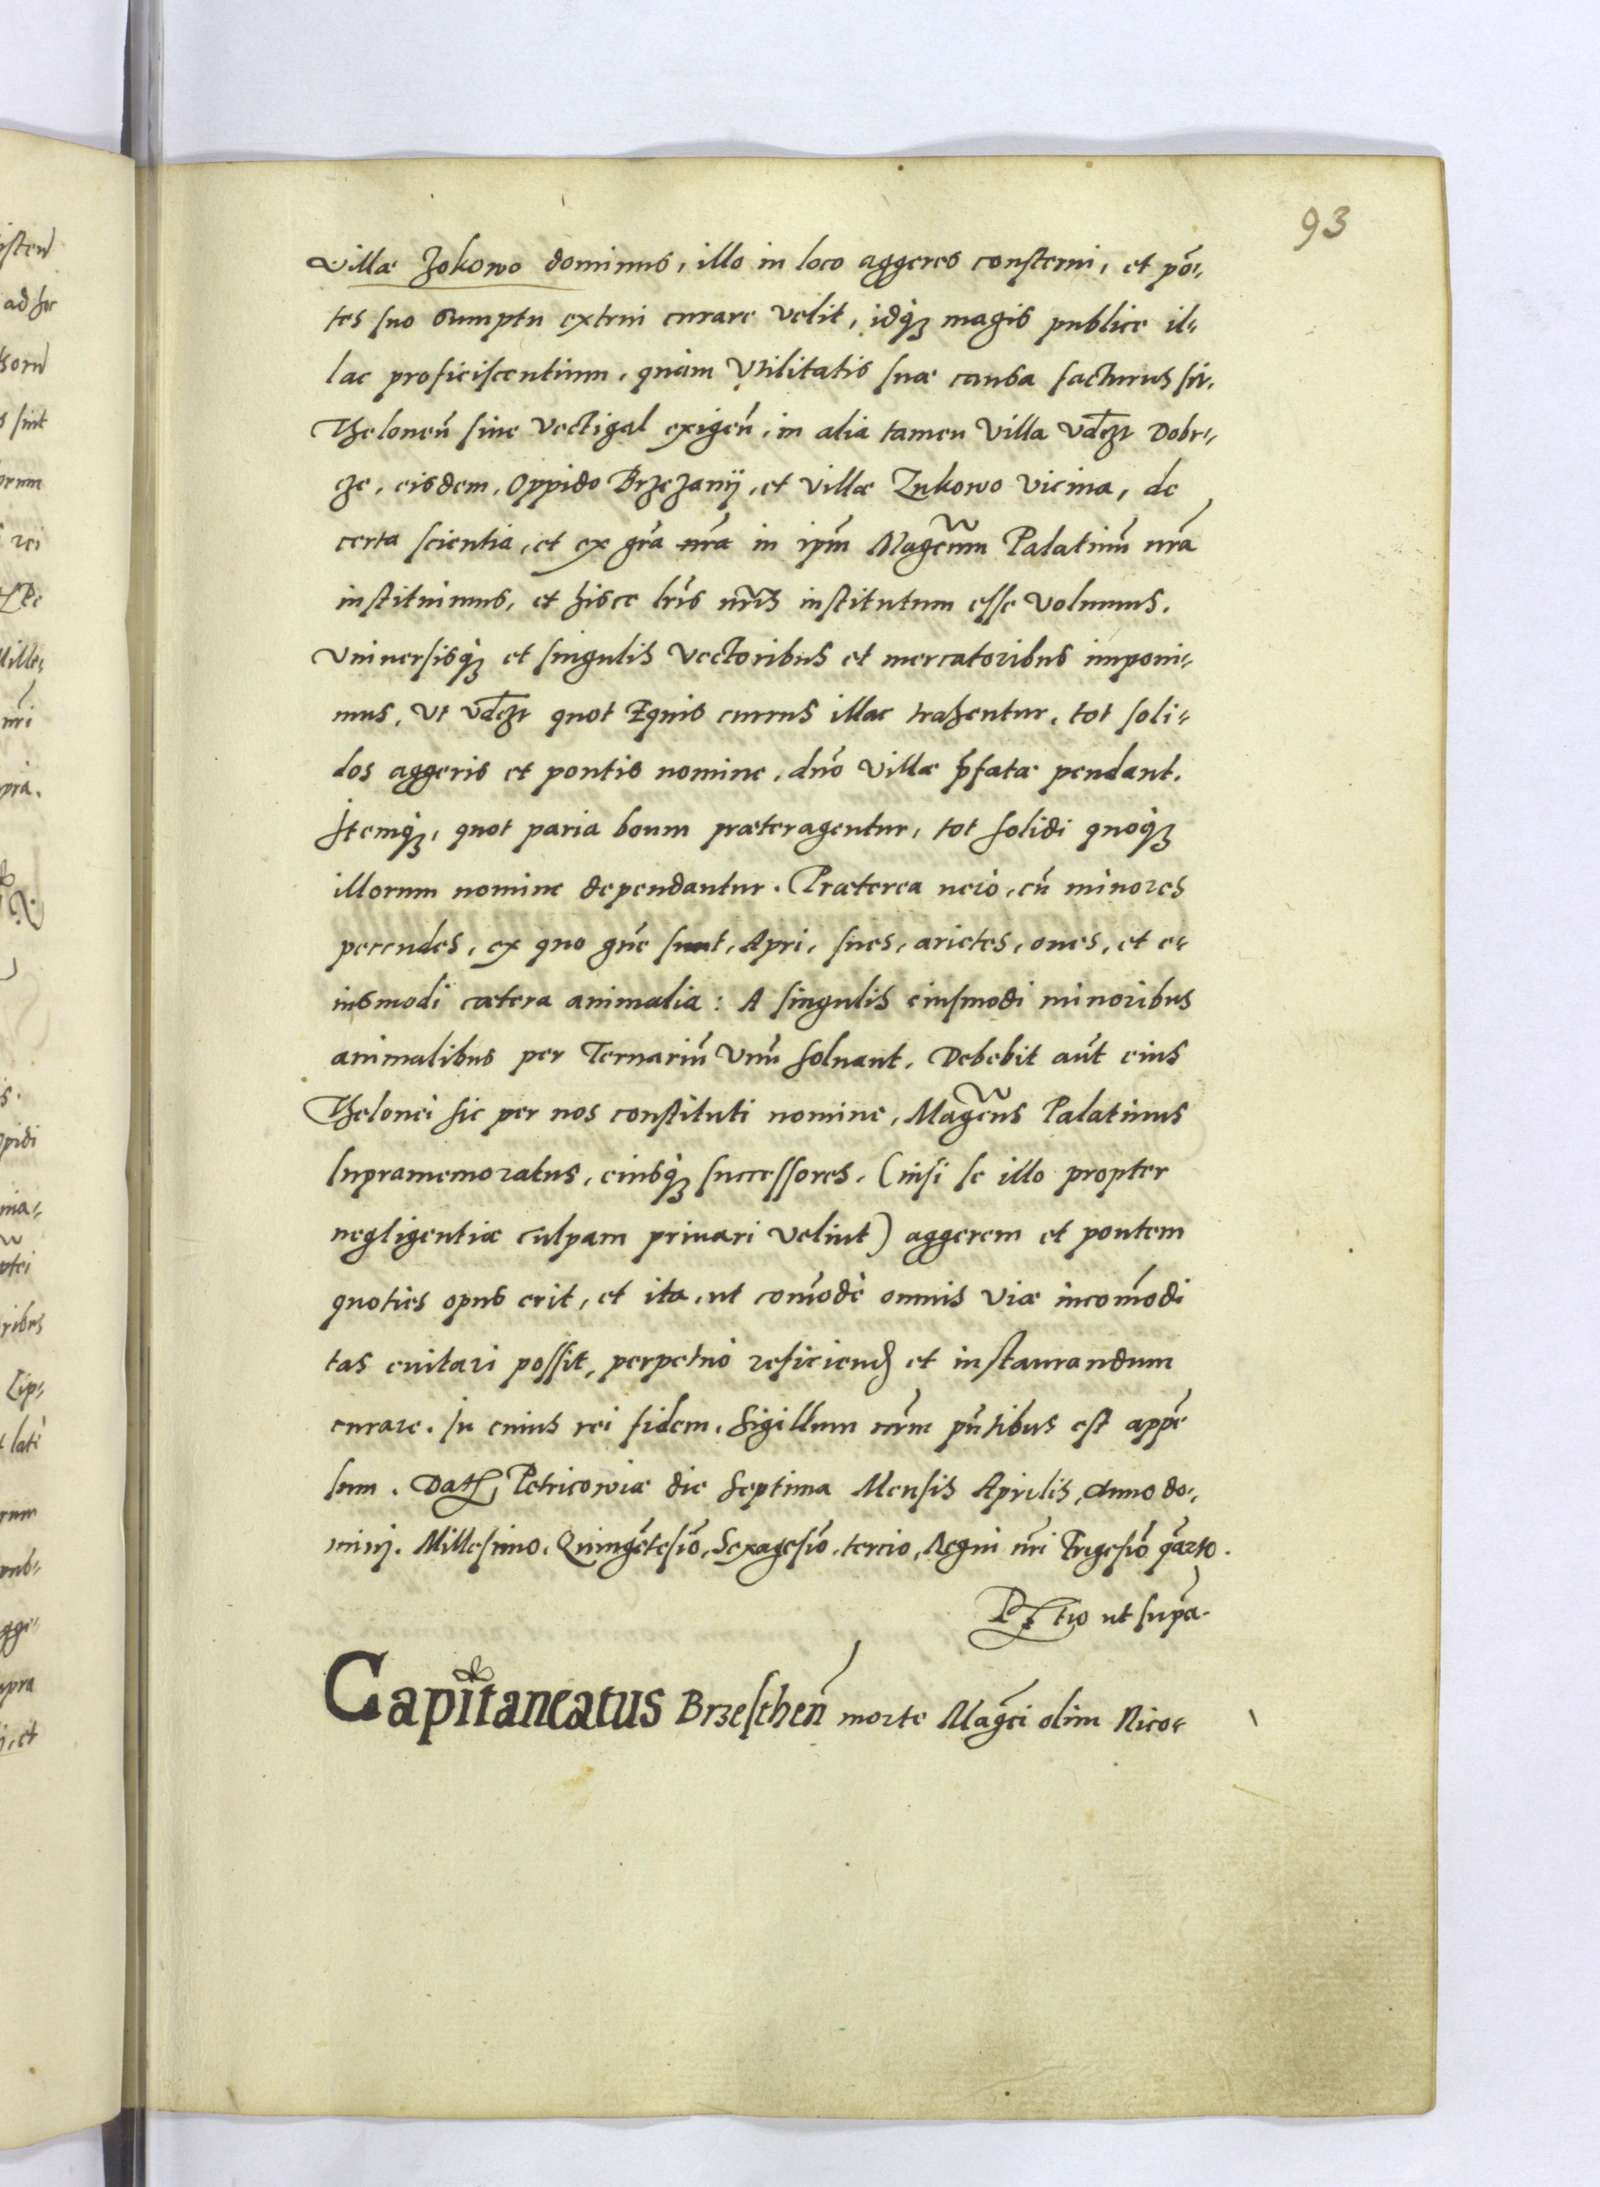 93
villæ Zokowo dominus, illo in loco aggeres consterni, et põ-
tes suo sumptu extrui curare velit, idq; magis publice il-
lac proficiscentium, quàm Vtilitatis suæ causa facturus sit.
Theloneũ siue Vectigal exigeñ, in alia tamen Villa vdczt Dobr-
ze, eisdem, Oppido Brzezanij, et villæ Zukowo vicina, de
certa scientia, et ex grã nrã in ipm̃ Magcum Palatinũ nrã
instituimus, et hisce lris̃ nris̃ institutum esse volumus.
Vniuersisq; et singulis Vectoribus et mercatoribus imponi-
mus, Vt vdczt quot Equis currus illac trahentur, tot soli-
dos aggeris et pontis nomine, dno villæ p̃fatæ pendant.
Itemq;, quot paria boum præteragentur, tot solidi quoq;
illorum nomine dependantur. Præterea uerò, cũ minores
pecudes, ex quo gñe sunt, Apri, sues, arietes, oues, et e-
iusmodi cætera animalia: A singulis eiusmodi minoribus
animalibus per Ternariũ Vnũ soluant. Debebit aũt eius
Thelonei sic per nos constituti nomine, Magcus Palatinus
supramemoratus, eiusq; successores. (nisi se illo propter
negligentiæ culpam priuari velint) aggerem et pontem
quoties opus erit, et ita, ut com̃odè omnis viæ incom̃odi
tas euitari possit, perpetuò reficiend et instaurandum
curare. In cuius rei fidem, Sigillum nrm̃ pñtibus est appẽ
sum. Dat Petricowiæ die Septima Mensis Aprilis, Anno do-
minj. Millesimo, Quingẽtesiõ, Sexagesiõ, tercio, Regni nrĩ Trigesiõ q̃arto.
Rtio ut supra.
Capitaneatus Brzescheñ morte Magci olim Nico-